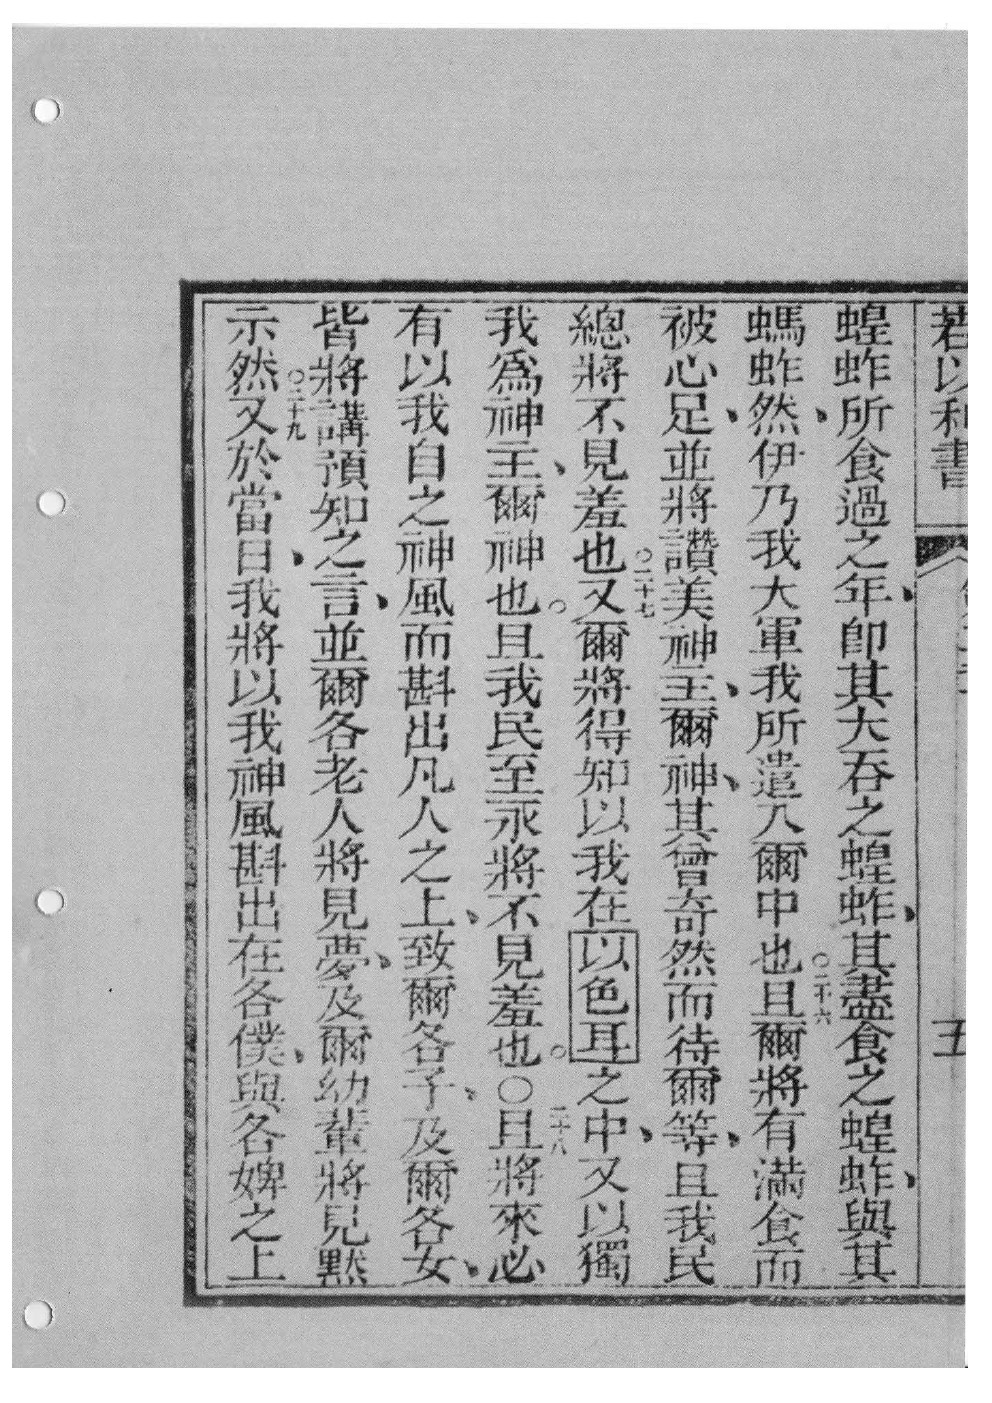 若以利書 五
蝗蚱所食過之年、卽其大吞之蝗蚱、其盡食之蝗蚱、與其
螞蚱、然伊乃我大軍我所遣入爾中也○二十六且爾將有滿食而
被心足、並將讚美神主、爾神、其曾奇然而待爾等、且我民
總將不見羞也○二十七又爾將得知以我在以色耳之中、又以獨
我爲神主、爾神也○且我民至永將不見羞也○○二十八且將來必
有以我自之神風而斟出凡人之上、致爾各子、及爾各女、
皆將講預知之言、並爾各老人將見夢、及爾幼輩將見默
示然○二十九又於當日、我將以我神風斟出在各僕、與各婢之上